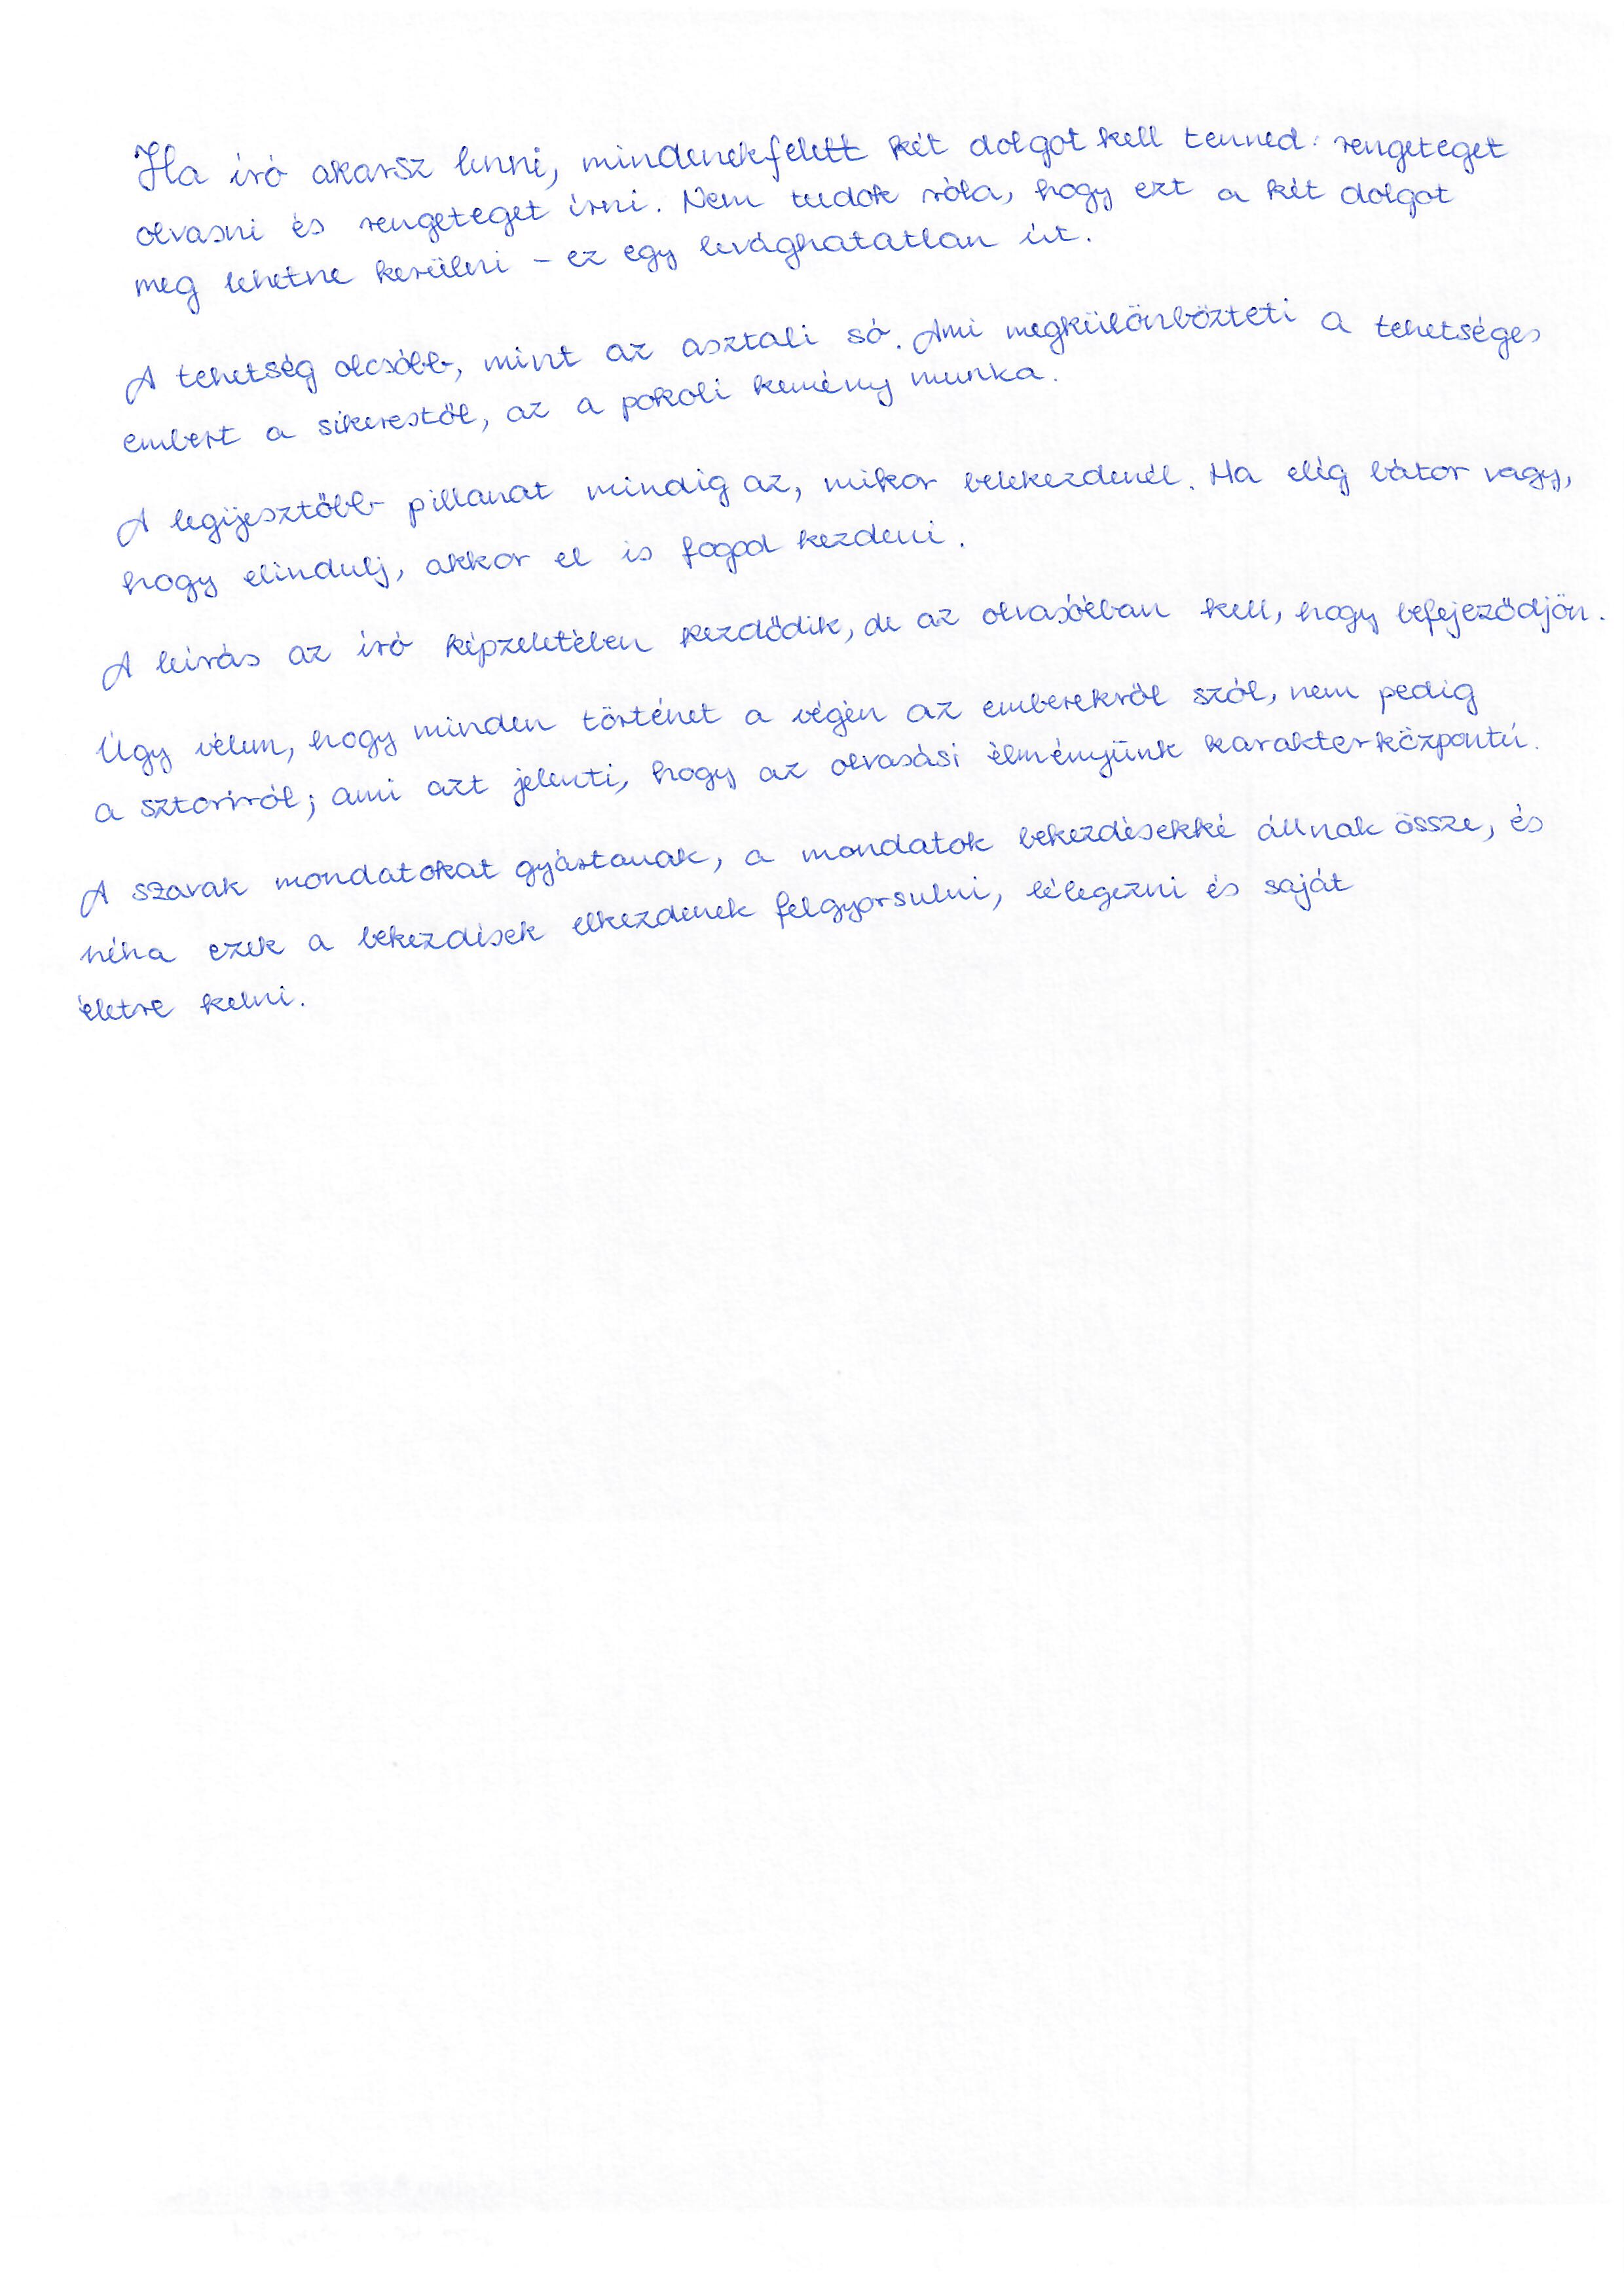 Ha író akarsz lenni, mindenekfelett két dolgot kell tenned: rengeteget
olvasni és rengeteget írni. Nem tudok róla, hogy ezt a két dolgot
meg lehetne kerülni – ez egy levághatatlan út.
A tehetség olcsóbb, mint az asztali só. Ami megkülönbözteti a tehetséges
embert a sikerestől, az a pokoli kemény munka.
A legijesztőbb pillanat mindig az, mikor belekezdenél. Ha elég bátor vagy,
hogy elindulj, akkor el is fogod kezdeni.
A leírás az író képzeletében kezdődik, de az olvasóéban kell, hogy befejeződjön.
Úgy vélem, hogy minden történet a végén az emberekről szól, nem pedig
a sztoriról; ami azt jelenti, hogy az olvasási élményünk karakterközpontú.
A szavak mondatokat gyártanak, a mondatok bekezdésekké állnak össze, és
néha ezek a bekezdések elkezdenek felgyorsulni, lélegezni és saját
életre kelni.